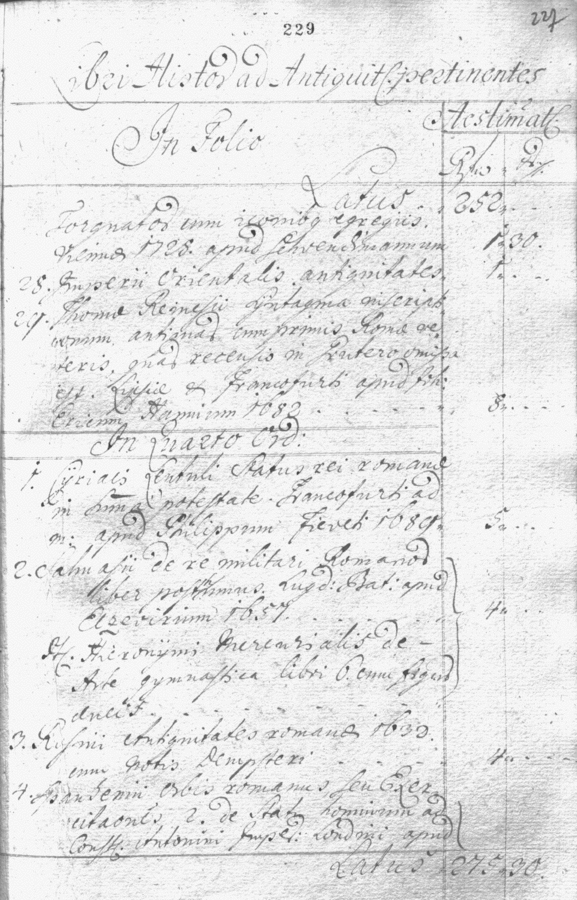 229
227
Libri Histor ad Antiquit: pertinentes
Aestimat:
In Folio
Latus 252
cum iconibq egregiis.
1728. apud 1 30.
28. Imperii Orientalis antiquitates. 1
29. Thomæ Reinesii Syntagma inscript
ionum antiquar cumprimis Romæ ve
teris, quar recensio in Grutero omissa
est. Lipsiæ et Francofurti apud
Hannium 1682 8
In Quarto Ord:
1. Cyriaci Lentuli Status rei romanæ
potestate. Francofurti ad
m: apud Philippum Fieveti 1689. 5
2. Salmasii de re militari Romanor
liber posthumus. Lugd: Bat: apud
Elzevirium 1657. 4
It. Hieronymi Mercurialis de
Arte gymnastica libri 6. cum figuris
3. Rosini Antiquitates romanæ 1632.
cum notis Dempsteri 4
4. Spanhemii Orbis romanus seu Exer
citationes 2. de Stat: hominum ad
Const: Antonini Imper: Londini apud
Latus 275 30.